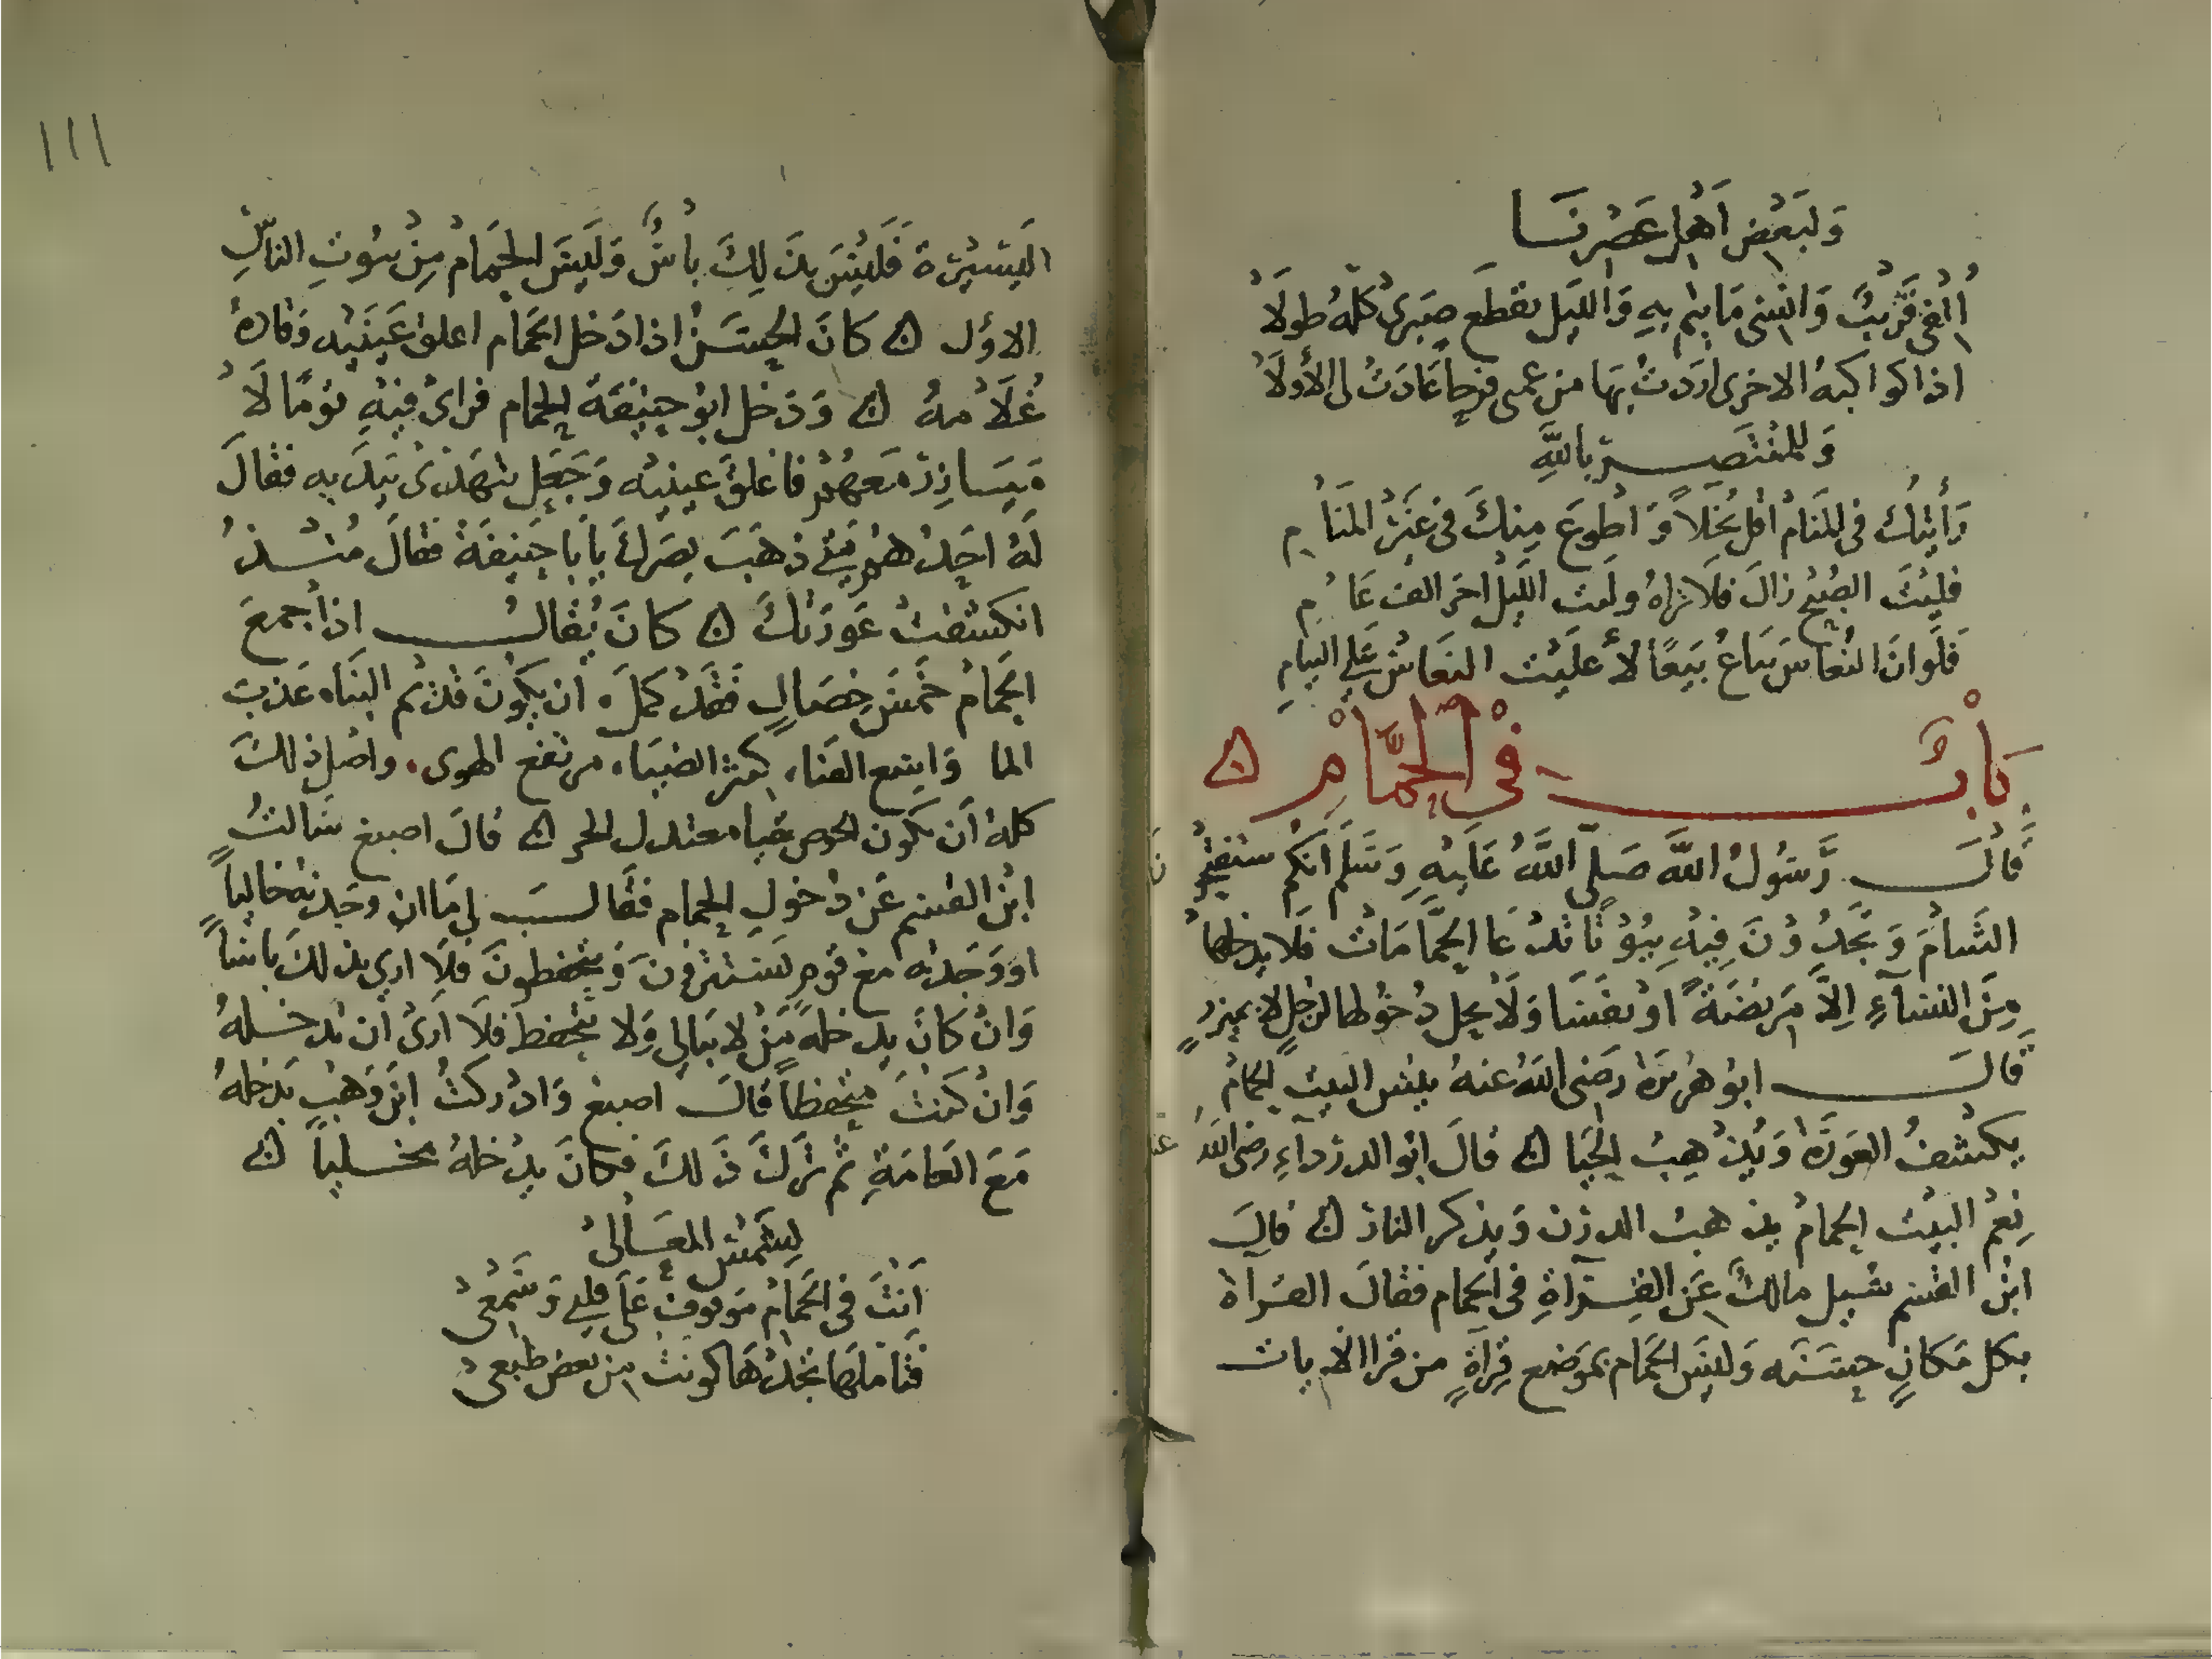 ولبعض أهل عصرنا
وانسى ما يتم به والليل يقطع صبرى كله طولا
اذا كواكبه الاخرى اردت بها من عمى عادت لى الأولا
وللمنتصر بالله
رأيتك فى المنام اقل بخلاً واطوع منك فى غير المنام
فليت الصبح زال فلا نراه وليت الليل اخر الف عام
فلو ان النعاس يباع بيعًا لأغليت النعاس على النيام
باب في الحمام
قال رسول الله صلى الله عليه وسلم انكم ستفتحون
الشام وتجدون فيه بيوتا تدعا الحمامات فلا يدخلها
من النساء إلا مريضة او نفسا ولا يحل دخولها لرجل الا بميزر
قال ابو هريرة رضى الله عنه بيس البيت الحمام
يكشف العورة ويذهب الحيا قال ابو الدرداء رضى الله عنه
نعم البيت الحمام يذهب الدرن ويذكر النار قال
ابن القسم سيل مالك عن القراة فى الحمام فقال القراة
بكل مكان حسنه وليس الحمام بموضع قراة من قرا الايات
١١١
اليسيرة فليس بذلك بأس وليس الحمام من بيوت الناس
الاول كان الحسن اذا دخل الحمام اغلق عينيه وقاده
غلامه ودخل ابو حنيفة الحمام فراى فيه قومًا لا
ميازر معهم فاغلق عينيه وجعل يتهدى بيديه فقال
له احدهم متى ذهب بصرك يا با حنيفة فقال منذ
انكشفت عورتك كان يقال اذا جمع
الحمام خمس خصال فقد كمل ان يكون قديم البناء عذب
الما واسع الفناء كثير الضياء مرتفع الهوى واصل ذلك
كله ان يكون الحوض نقيا معتدل الحر قال اصبغ سالت
ابن القسم عن دخول الحمام فقال لى ما ان وجدته خاليا
او وجدته مع قوم يستترون ويتحفظون فلا ارى بذلك باسا
وان كان يدخله من لا يبالى ولا يتحفظ فلا أرى أن تدخله
وان كنت متحفظا قال اصبغ وادركت ابن وهب يدخله
مع العامة ثم ترك ذلك فكان يدخله مخليا
لشمس المعالى
أنت فى الحمام موقوف على قلبى وسمعى
فتأملها تجدها كونت من بعض طبعى